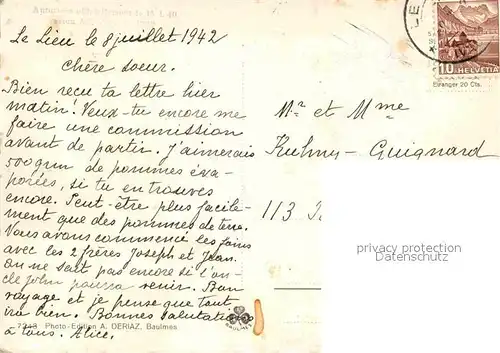 Le Lieu le 8 juillet 1942
Chère soeur.
Bien reçu ta lettre hier
matin! Veux-tu encore me
faire une commission
avant de partir. J'aimerais
500 grm de pommes éva-
porées, si tu en trouves
encore. Peut-être plus facile-
ment que des pommes de terre.
Nous avons commencé les foins
avec les 2 frères Joseph et Jean.
On ne sait pas encore si l'on-
cle John pourra venir. Bon
voyage et je pense que tout
ira bien. Bonnes salutations
à tous. Alice.
7243 Photo-Edition A. DERIAZ, Baulmes
BAULMES
10 HELVETIA
Etranger 20 Cts.
Mr. et Mme
Kuhny-Guignard
113
privacy protection
Datenschutz